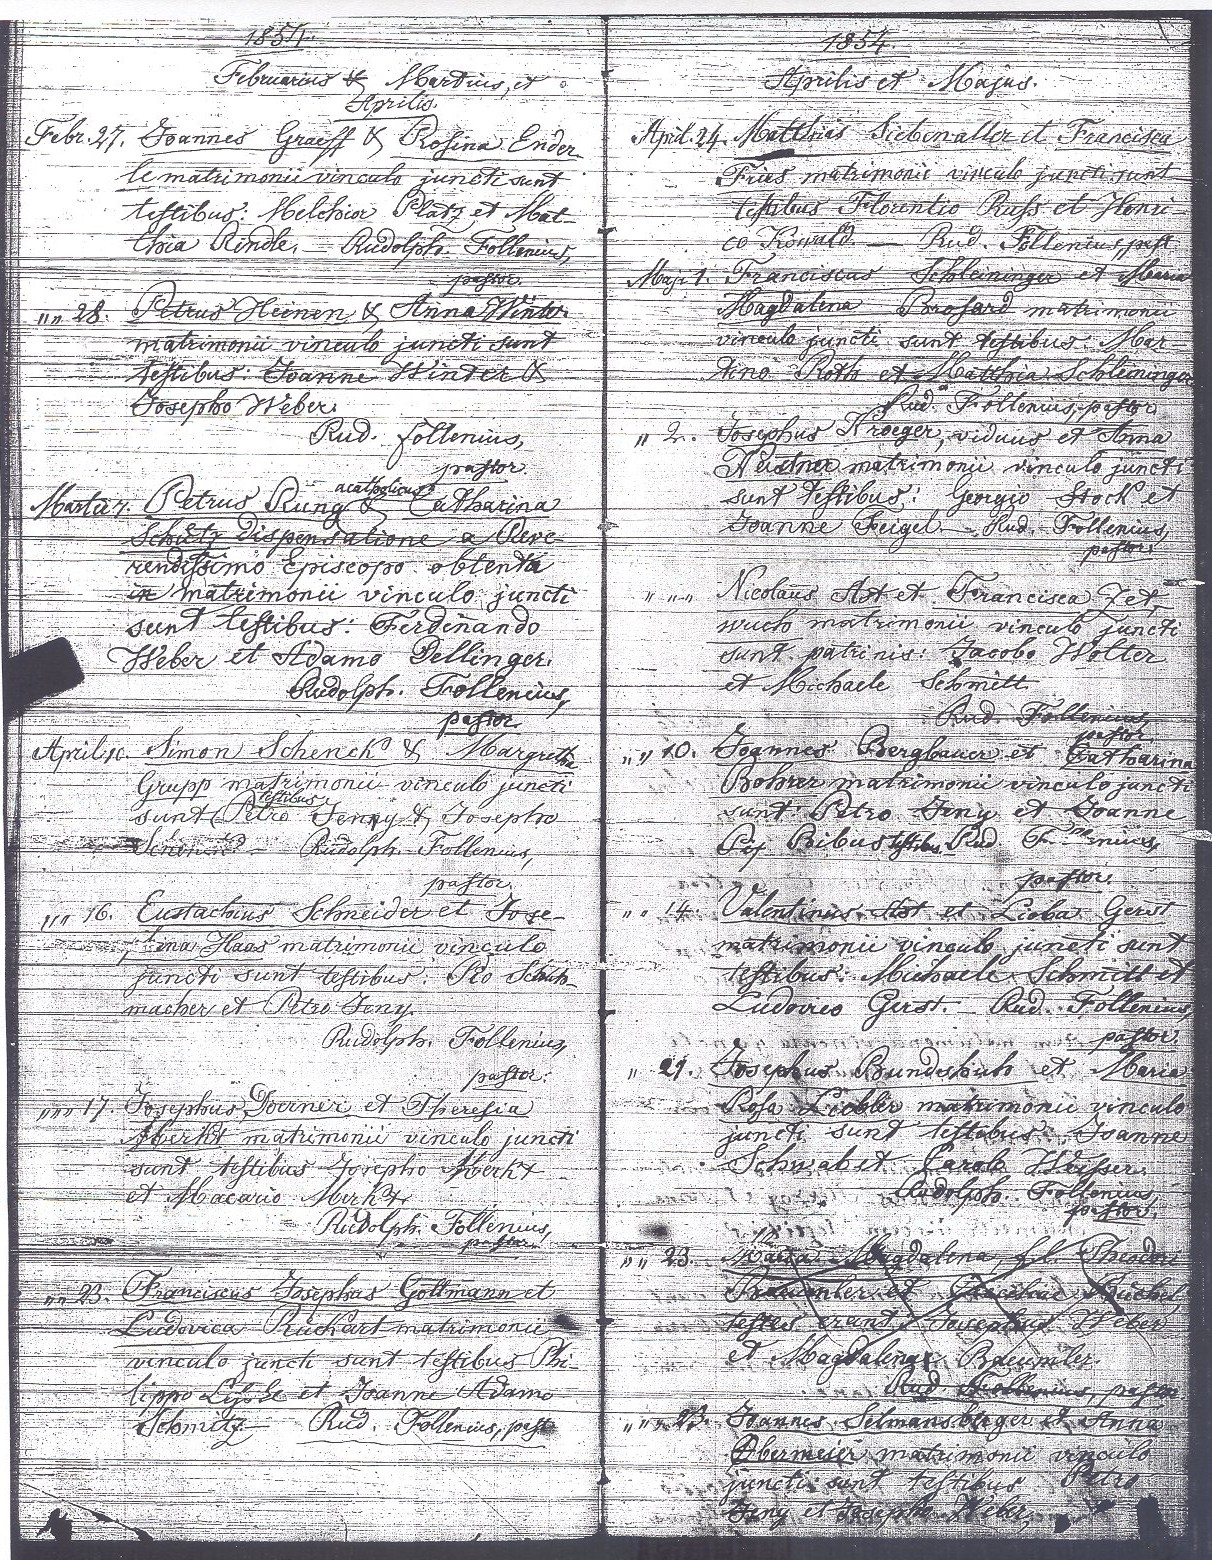 1854.
Februarius & Martius, et
Aprilis.
Febr. 27. Joannes Graeff & Rosina Ender
le matrimonii vinculo juncti sunt
testibus: Melchior Platz et Mat-
thia Rinde. Rudolph. Follenius,
pastor.
"" 28. Petrus Heinen & Anna Winter
matrimonii vinculo juncti sunt
testibus: Joanne Winter &
Josepho Weber.
Rud. Follenius,
pastor
acatholicus
Mart. 7. Petrus Rung & Catharina
Schütz dispensatione a Reve-
rendissimo Episcopo obtenta
in matrimonii vinculo juncti
sunt testibus: Ferdinando
Weber et Adamo Dellinger.
Rudolph. Follenius,
pastor.
April. 10. Simon Schenck & Margretha
Grupp matrimonii vinculo juncti
testibus
sunt Petro Jenny & Josepho
Rudolph. Follenius,
pastor.
"" 16. Eustachius Schneider et Jose-
fina Haas matrimonii vinculo
juncti sunt testibus: Pio Schuh-
macher et Petro Jeny.
Rudolph. Follenius,
pastor.
"" 17. Josephus Doerner et Theresia
Merkt matrimonii vinculo juncti
sunt testibus Josepho Merkt
et Macario Merkt.
Rudolph. Follenius,
pastor.
"" 23. Franciscus Josephus Goltmann et
Ludovica Ruckart matrimonii
vinculo juncti sunt testibus Phi-
lippo et Joanne Adamo
Schmitz. Rud. Follenius, past.
1854.
Aprilis et Majus.
April. 24. Matthias Siebenaller et Francisca
Fries matrimonii vinculo juncti sunt
testibus Florentio Russ et Henri-
co Kowald — Rud. Follenius, past.
Maji 1. Franciscus Schleininger et Maria
Magdalena Brosard matrimonii
vinculo juncti sunt testibus: Mar
tino Roth et Matthia Schleininger
Rud. Follenius, pastor
" 2. Josephus Kroeger, viduus et Anna
Neistner matrimonii vinculo juncti
sunt testibus: Georgio Stock et
Joanne Feigel — Rud. Follenius,
pastor.
" "" Nicolaus Ast et Francisca Zet
wuch matrimonii vinculo juncti
sunt patrinis: Jacobo Wolter
et Michaele Schmitt
Rud. Follenius,
pastor.
"" 10. Joannes Bergbauer et Catharina
Bohrer matrimonii vinculo juncti
sunt: Petro Jeny et Joanne
Bibus testibus Rud.
pastor.
" " 14. Valentinus Ast et Lioba Gerst
matrimonii vinculo juncti sunt
testibus: Michaele Schmitt et
Ludovico Gerst. — Rud. Follenius,
pastor.
" 21. Josephus Bundschuh et Maria
Rosa Liebler matrimonii vinculo
juncti sunt testibus: Joanne
Schwab et Carolo Weisser.
Rudolph. Follenius,
pastor.
"" 23. Maria Magdalena, fil. Theodori
Baeumler et
testes erant: Weber
et Magdalena Baeumler.
Rud. Follenius, pastor
"" 23. Joannes Selmansberger et Anna
Obermeier matrimonii vinculo
juncti sunt testibus Petro
Jeny et Josepho Weber.